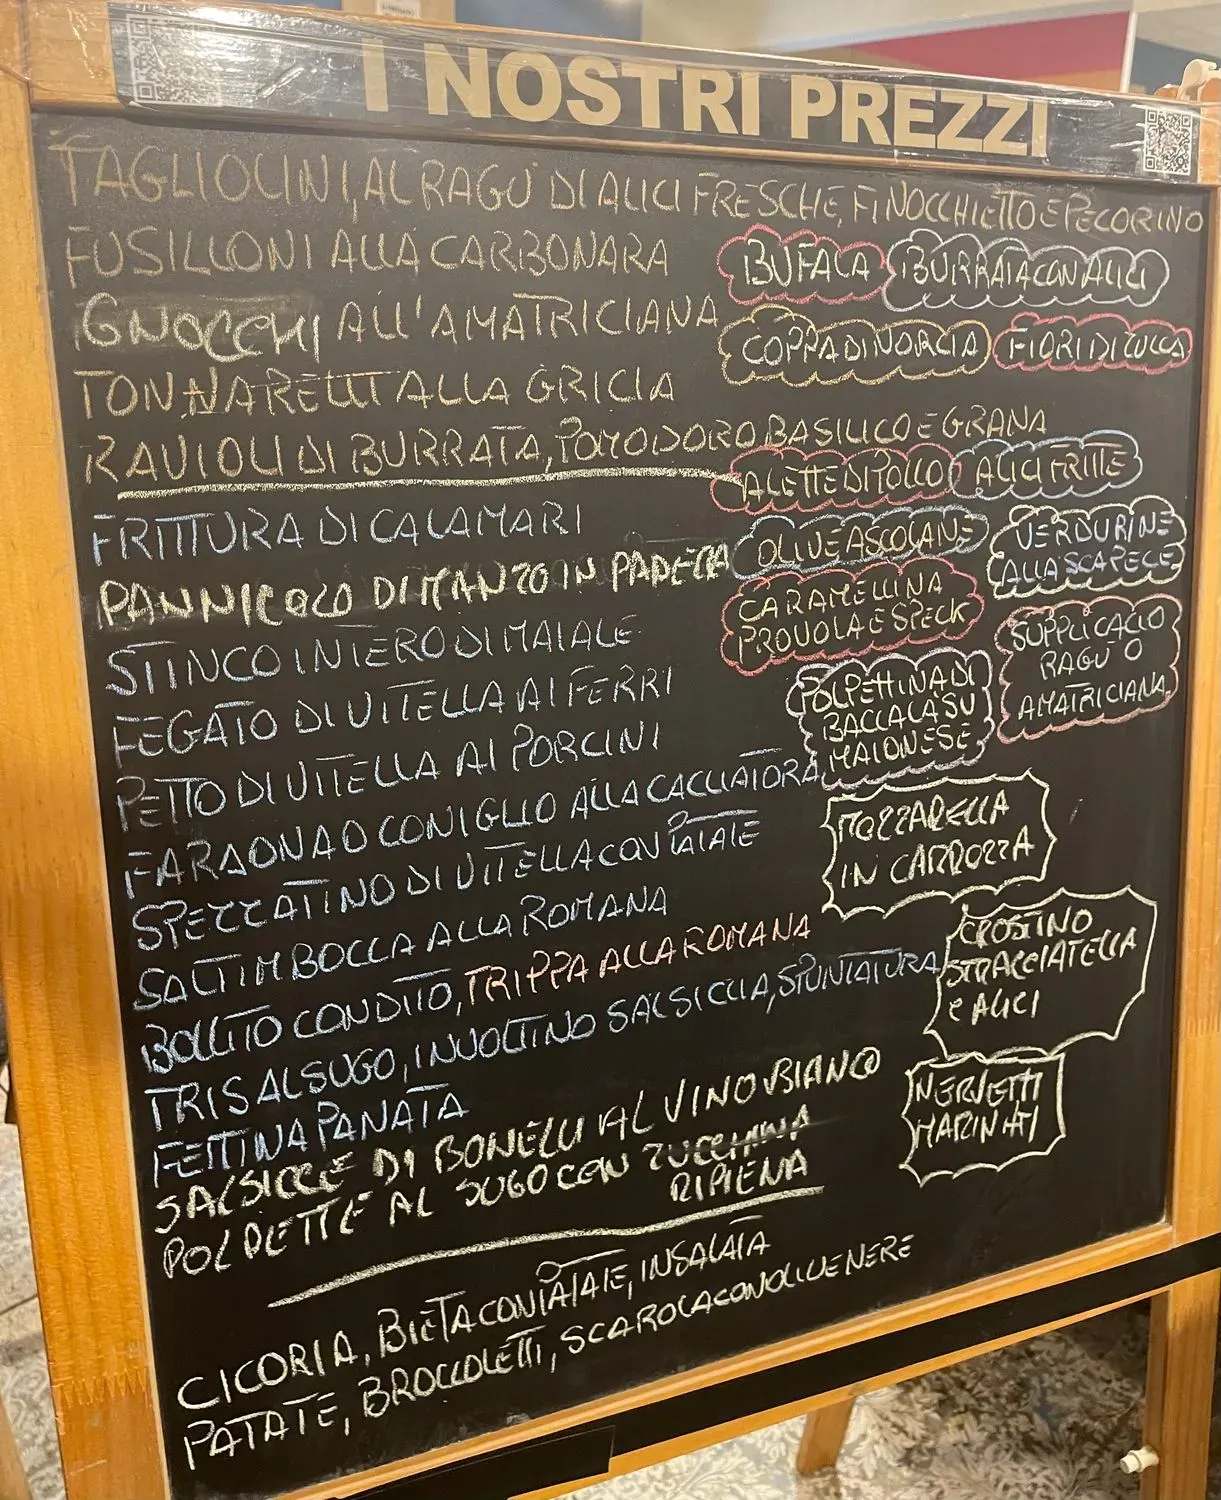 I NOSTRI PREZZI
TAGLIOLINI, AL RAGÙ DI ALICI FRESCHE, FINOCCHIETTO E PECORINO
FUSILLONI ALLA CARBONARA
GNOCCHI ALL'AMATRICIANA
TONNARELLI ALLA GRICIA
RAVIOLI DI BURRATA, POMODORO BASILICO E GRANA
BUFALA
BURRATA CON ALICI
COPPA DI NORCIA
FIORI DI ZUCCA
ALETTE DI POLLO
ALICI FRITTE
OLIVE ASCOLANE
VERDURINE
ALLA SCAPECE
CARAMELLINA
PROVOLA E SPECK
SUPPLI CACIO
RAGU O
AMATRICIANA
POLPETTINA DI
BACCALA SU
MAIONESE
MOZZARELLA
IN CARROZZA
CROSTINO
STRACCIATELLA
e ALICI
NERVETTI
MARINATI
FRITTURA DI CALAMARI
PANNICOLO DI MANZO IN PADELLA
STINCO INTERO DI MAIALE
FEGATO DI VITELLA AI FERRI
PETTO DI VITELLA AI PORCINI
FARAONA O CONIGLIO ALLA CACCIATORA
SPEZZATINO DI VITELLA CON PATATE
SALTIMBOCCA ALLA ROMANA
BOLLITO CONDITO, TRIPPA ALLA ROMANA
TRIS AL SUGO, INVOLTINO SALSICCIA, SPUNTATURA
FETTINA PANATA
SALSICCE DI BONELLI AL VINO BIANCO
POLPETTE AL SUGO CON ZUCCHINA
RIPIENA
CICORIA, BIETA CON PATATE, INSALATA
PATATE, BROCCOLETTI, SCAROLA CON OLIVE NERE